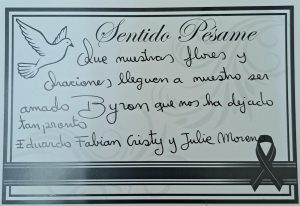 Sentido Pésame
Que nuestras flores y
oraciones lleguen a nuestro ser
amado Byron que nos ha dejado
tan pronto
Eduardo Fabian Cristy y Julie Moreno